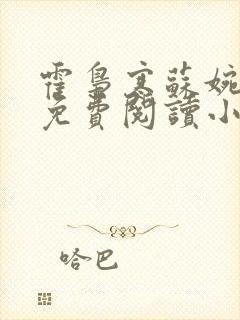 霍梟寒蘇婉
免費閱讀小
哈巴